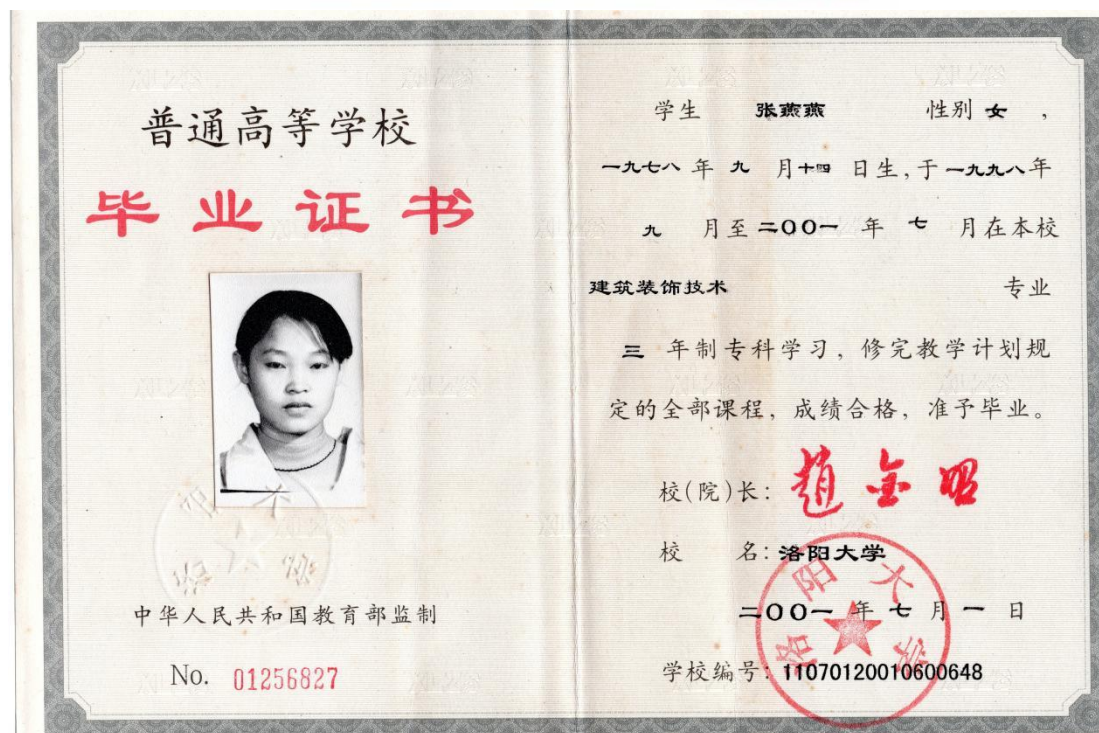 普通高等学校
毕业证书
中华人民共和国教育部监制
No. 01256827
学生 张燕燕 性别 女 ,
一九七八 年 九 月 十四 日生,于 一九九八 年
九 月至 二OO一 年 七 月在本校
建筑装饰技术 专业
三 年制专科学习,修完教学计划规
定的全部课程,成绩合格,准予毕业。
校(院)长: 趙金昭
校 名: 洛阳大学
二OO一 年 七 月 一 日
学校编号: 11070120010600648
洛阳大学